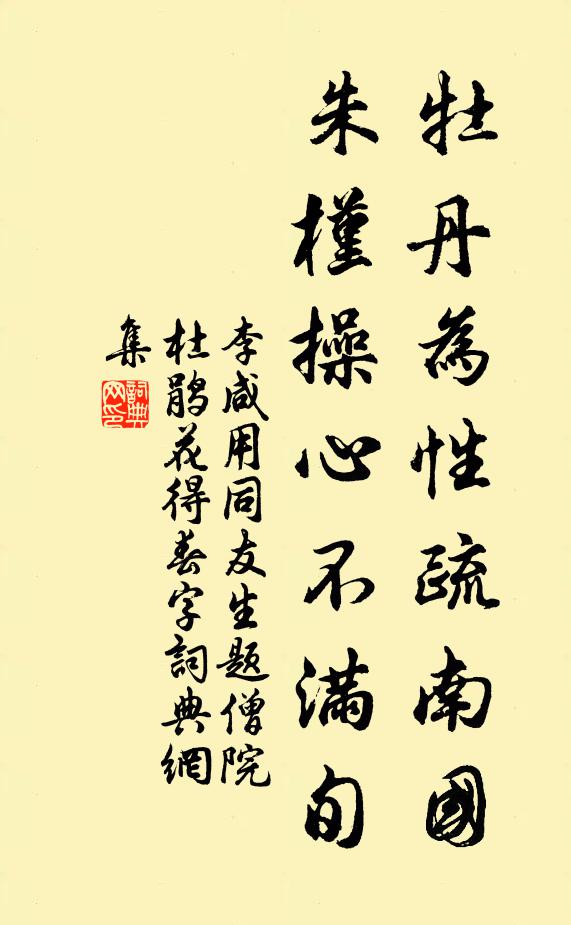 牡丹為性疏南國
朱槿操心不滿旬
李咸用同友生題僧院
杜鵑花得春字詞典網
集
詞典
网印